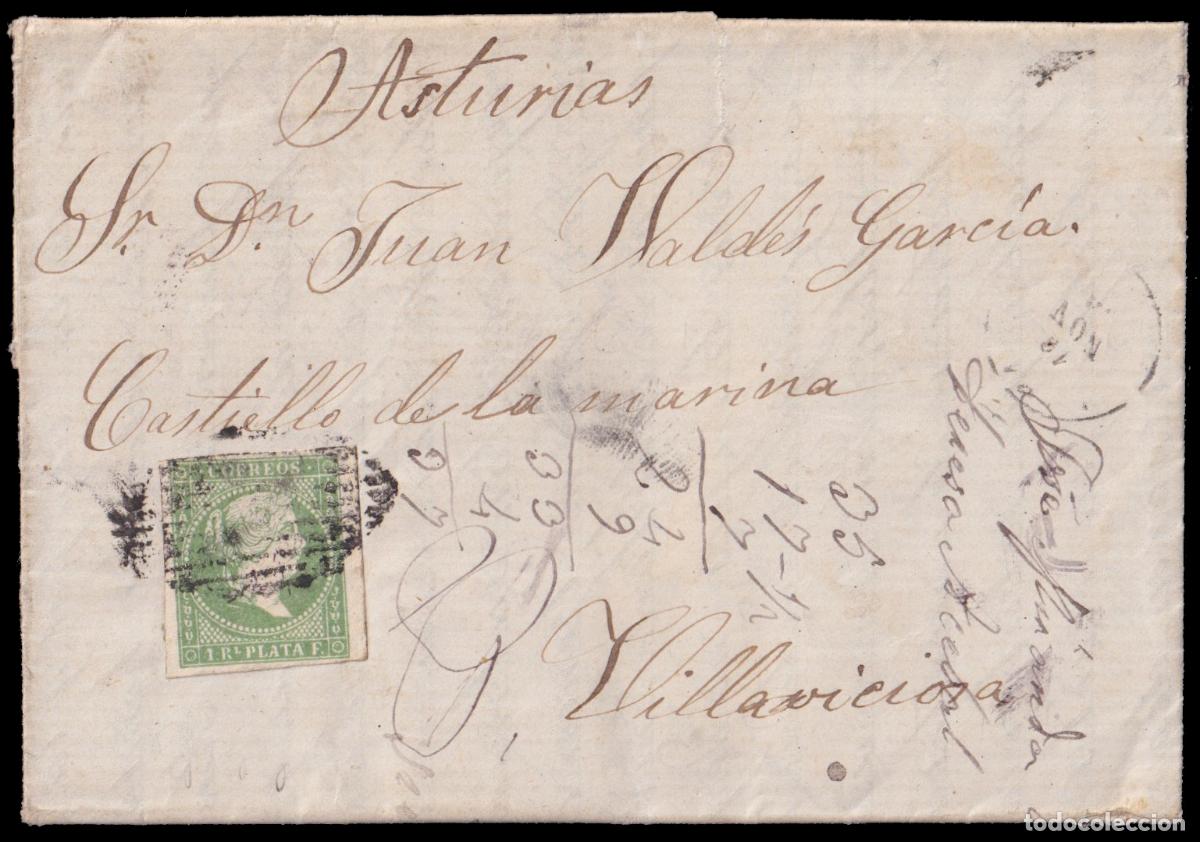 Asturias
Sr. Dn Juan Valdés García.
Castiello de la marina
Villaviciosa
CORREOS
1. Rl. PLATA F.
NOV
35
17-1/2
2
24
9
33
4
37
todocoleccion